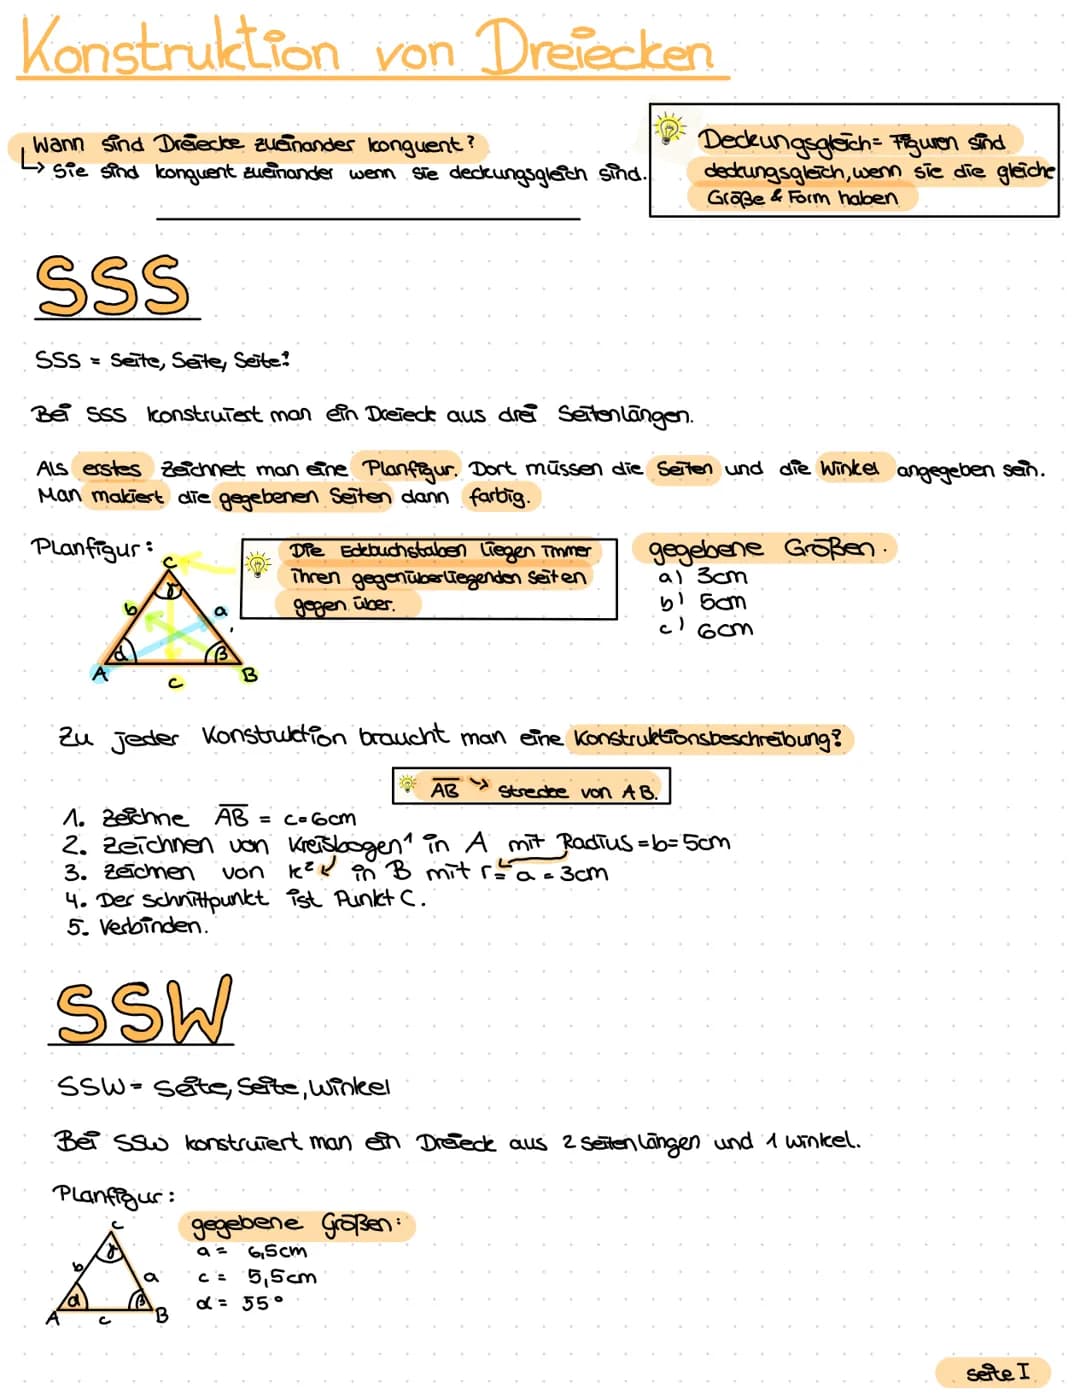 Konstruktion von Dreiecken
Wann sind Dreiecke zueinander konguent?
↳ Sie sind konguent zueinander wenn sie deckungsgleich sind.
Deckungsgleich = Figuren sind
deckungsgleich, wenn sie die gleiche
Größe & Form haben
SSS
SSS = Seite, Seite, Seite!
Bei SSS konstruiert man ein Dreieck aus drei Seitenlängen.
Als erstes zeichnet man eine Planfigur. Dort müssen die Seiten und die Winkel angegeben sein.
Man makiert die gegebenen Seiten dann farbig.
Planfigur:
C
γ
b
a
α
β
A
c
B
Die Eckbuchstaben liegen immer
ihren gegenüberliegenden Seiten
gegen über.
gegebene Größen.
a) 3cm
b) 5cm
c) 6cm
Zu jeder Konstruktion braucht man eine Konstruktionsbeschreibung!
AB ↪ Strecke von AB.
1. Zeichne AB = c=6cm
2. Zeichnen von Kreisbogen¹ in A mit Radius = b= 5cm
3. Zeichnen von k² in B mit r= a = 3cm
4. Der Schnittpunkt ist Punkt C.
5. Verbinden.
SSW
SSW = Seite, Seite, Winkel
Bei SSW konstruiert man ein Dreieck aus 2 Seitenlängen und 1 Winkel.
Planfigur:
C
γ
b
a
α
β
A
c
B
gegebene Größen:
a = 6,5cm
c = 5,5cm
α = 55°
Seite I